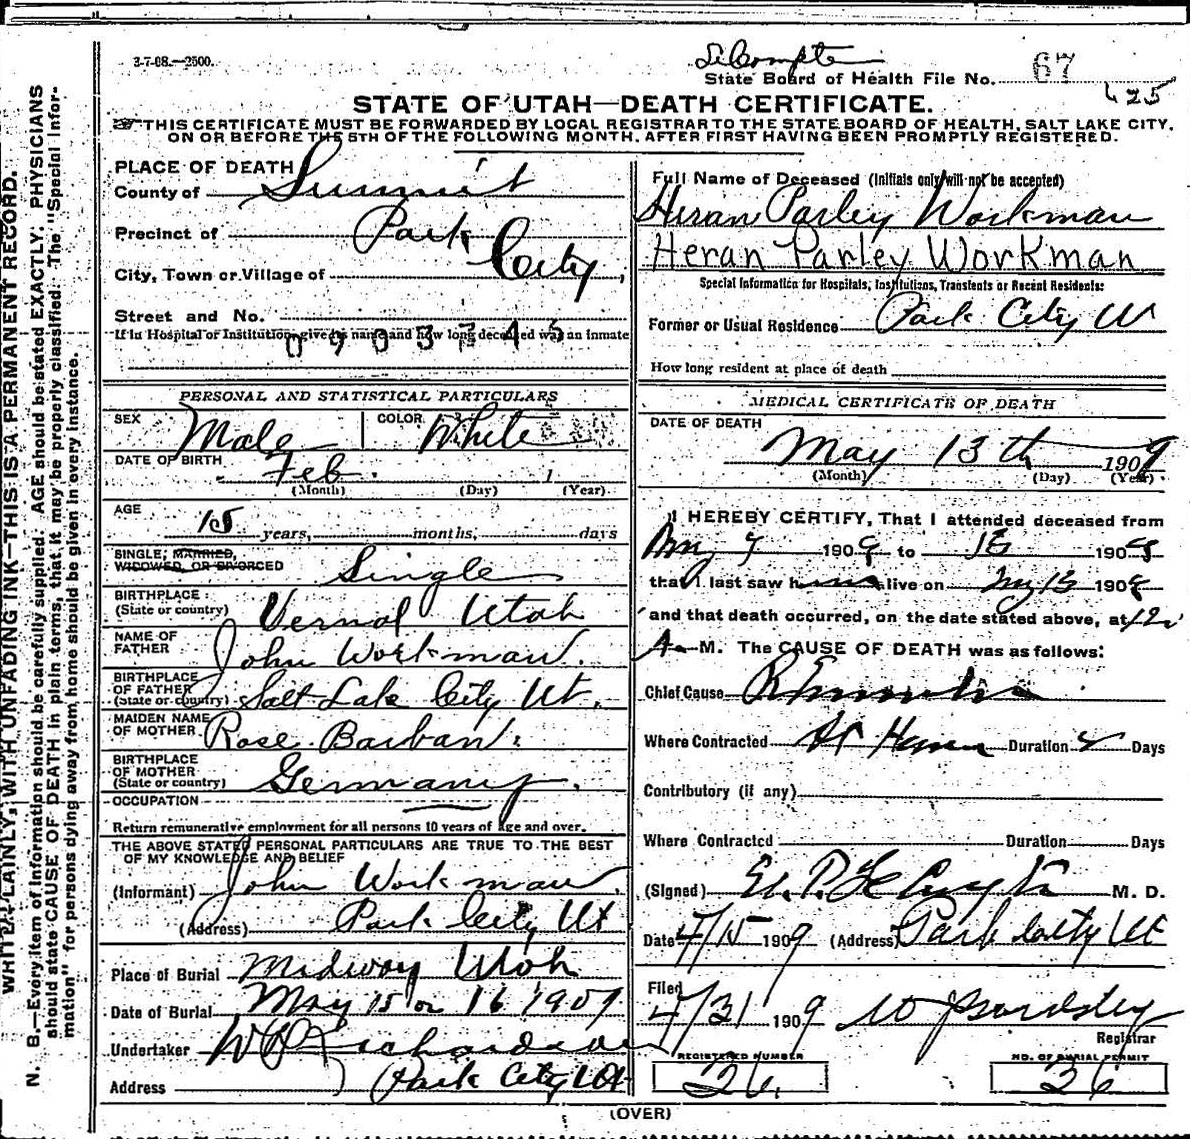 3-7-08.—2500.
State Board of Health File No. 67
425
STATE OF UTAH—DEATH CERTIFICATE.
THIS CERTIFICATE MUST BE FORWARDED BY LOCAL REGISTRAR TO THE STATE BOARD OF HEALTH, SALT LAKE CITY,
ON OR BEFORE THE 5TH OF THE FOLLOWING MONTH, AFTER FIRST HAVING BEEN PROMPTLY REGISTERED.
WRITE PLAINLY, WITH UNFADING INK—THIS IS A PERMANENT RECORD.
N. B.—Every item of information should be carefully supplied. AGE should be stated EXACTLY. PHYSICIANS
should state CAUSE OF DEATH in plain terms, that it may be properly classified. The "Special Infor-
mation" for persons dying away from home should be given in every instance.
PLACE OF DEATH
County of Summit
Precinct of Park
City, Town or Village of City,
Street and No.
If in Hospital or Institution, give its name and how long deceased was an inmate
PERSONAL AND STATISTICAL PARTICULARS
SEX Male COLOR White
DATE OF BIRTH Feb.
(Month) (Day) (Year)
AGE 15 years, months, days
SINGLE, MARRIED,
WIDOWED, OR DIVORCED Single
BIRTHPLACE
(State or country) Vernal Utah
NAME OF
FATHER John Workman.
BIRTHPLACE
OF FATHER
(State or country) Salt Lake City Ut.
MAIDEN NAME
OF MOTHER Rose Barban.
BIRTHPLACE
OF MOTHER
(State or country) Germany.
OCCUPATION
Return remunerative employment for all persons 10 years of Age and over.
THE ABOVE STATED PERSONAL PARTICULARS ARE TRUE TO THE BEST
OF MY KNOWLEDGE AND BELIEF
(Informant) John Workman
(Address) Park City Ut
Place of Burial Midway Utah
Date of Burial May 15 or 16 1909
Undertaker W Richardson
Address Park City Ut
Full Name of Deceased (Initials only will not be accepted)
Hiran Parley Workman
Heran Parley Workman
Special Information for Hospitals, Institutions, Transients or Recent Residents:
Former or Usual Residence Park City Ut
How long resident at place of death
MEDICAL CERTIFICATE OF DEATH
DATE OF DEATH
May 13th 1909
(Month) (Day) (Year)
I HEREBY CERTIFY, That I attended deceased from
May 9 1909 to 1909
that I last saw h alive on May 13 1909
and that death occurred, on the date stated above, at 12
A M. The CAUSE OF DEATH was as follows:
Chief Cause
Where Contracted At Home Duration 4 Days
Contributory (if any)
Where Contracted Duration Days
(Signed) M. D.
Date 4/15 1909 (Address) Park City Ut
Filed
4/31 1909
Registrar
REGISTERED NUMBER
26
NO. OF BURIAL PERMIT
36
(OVER)